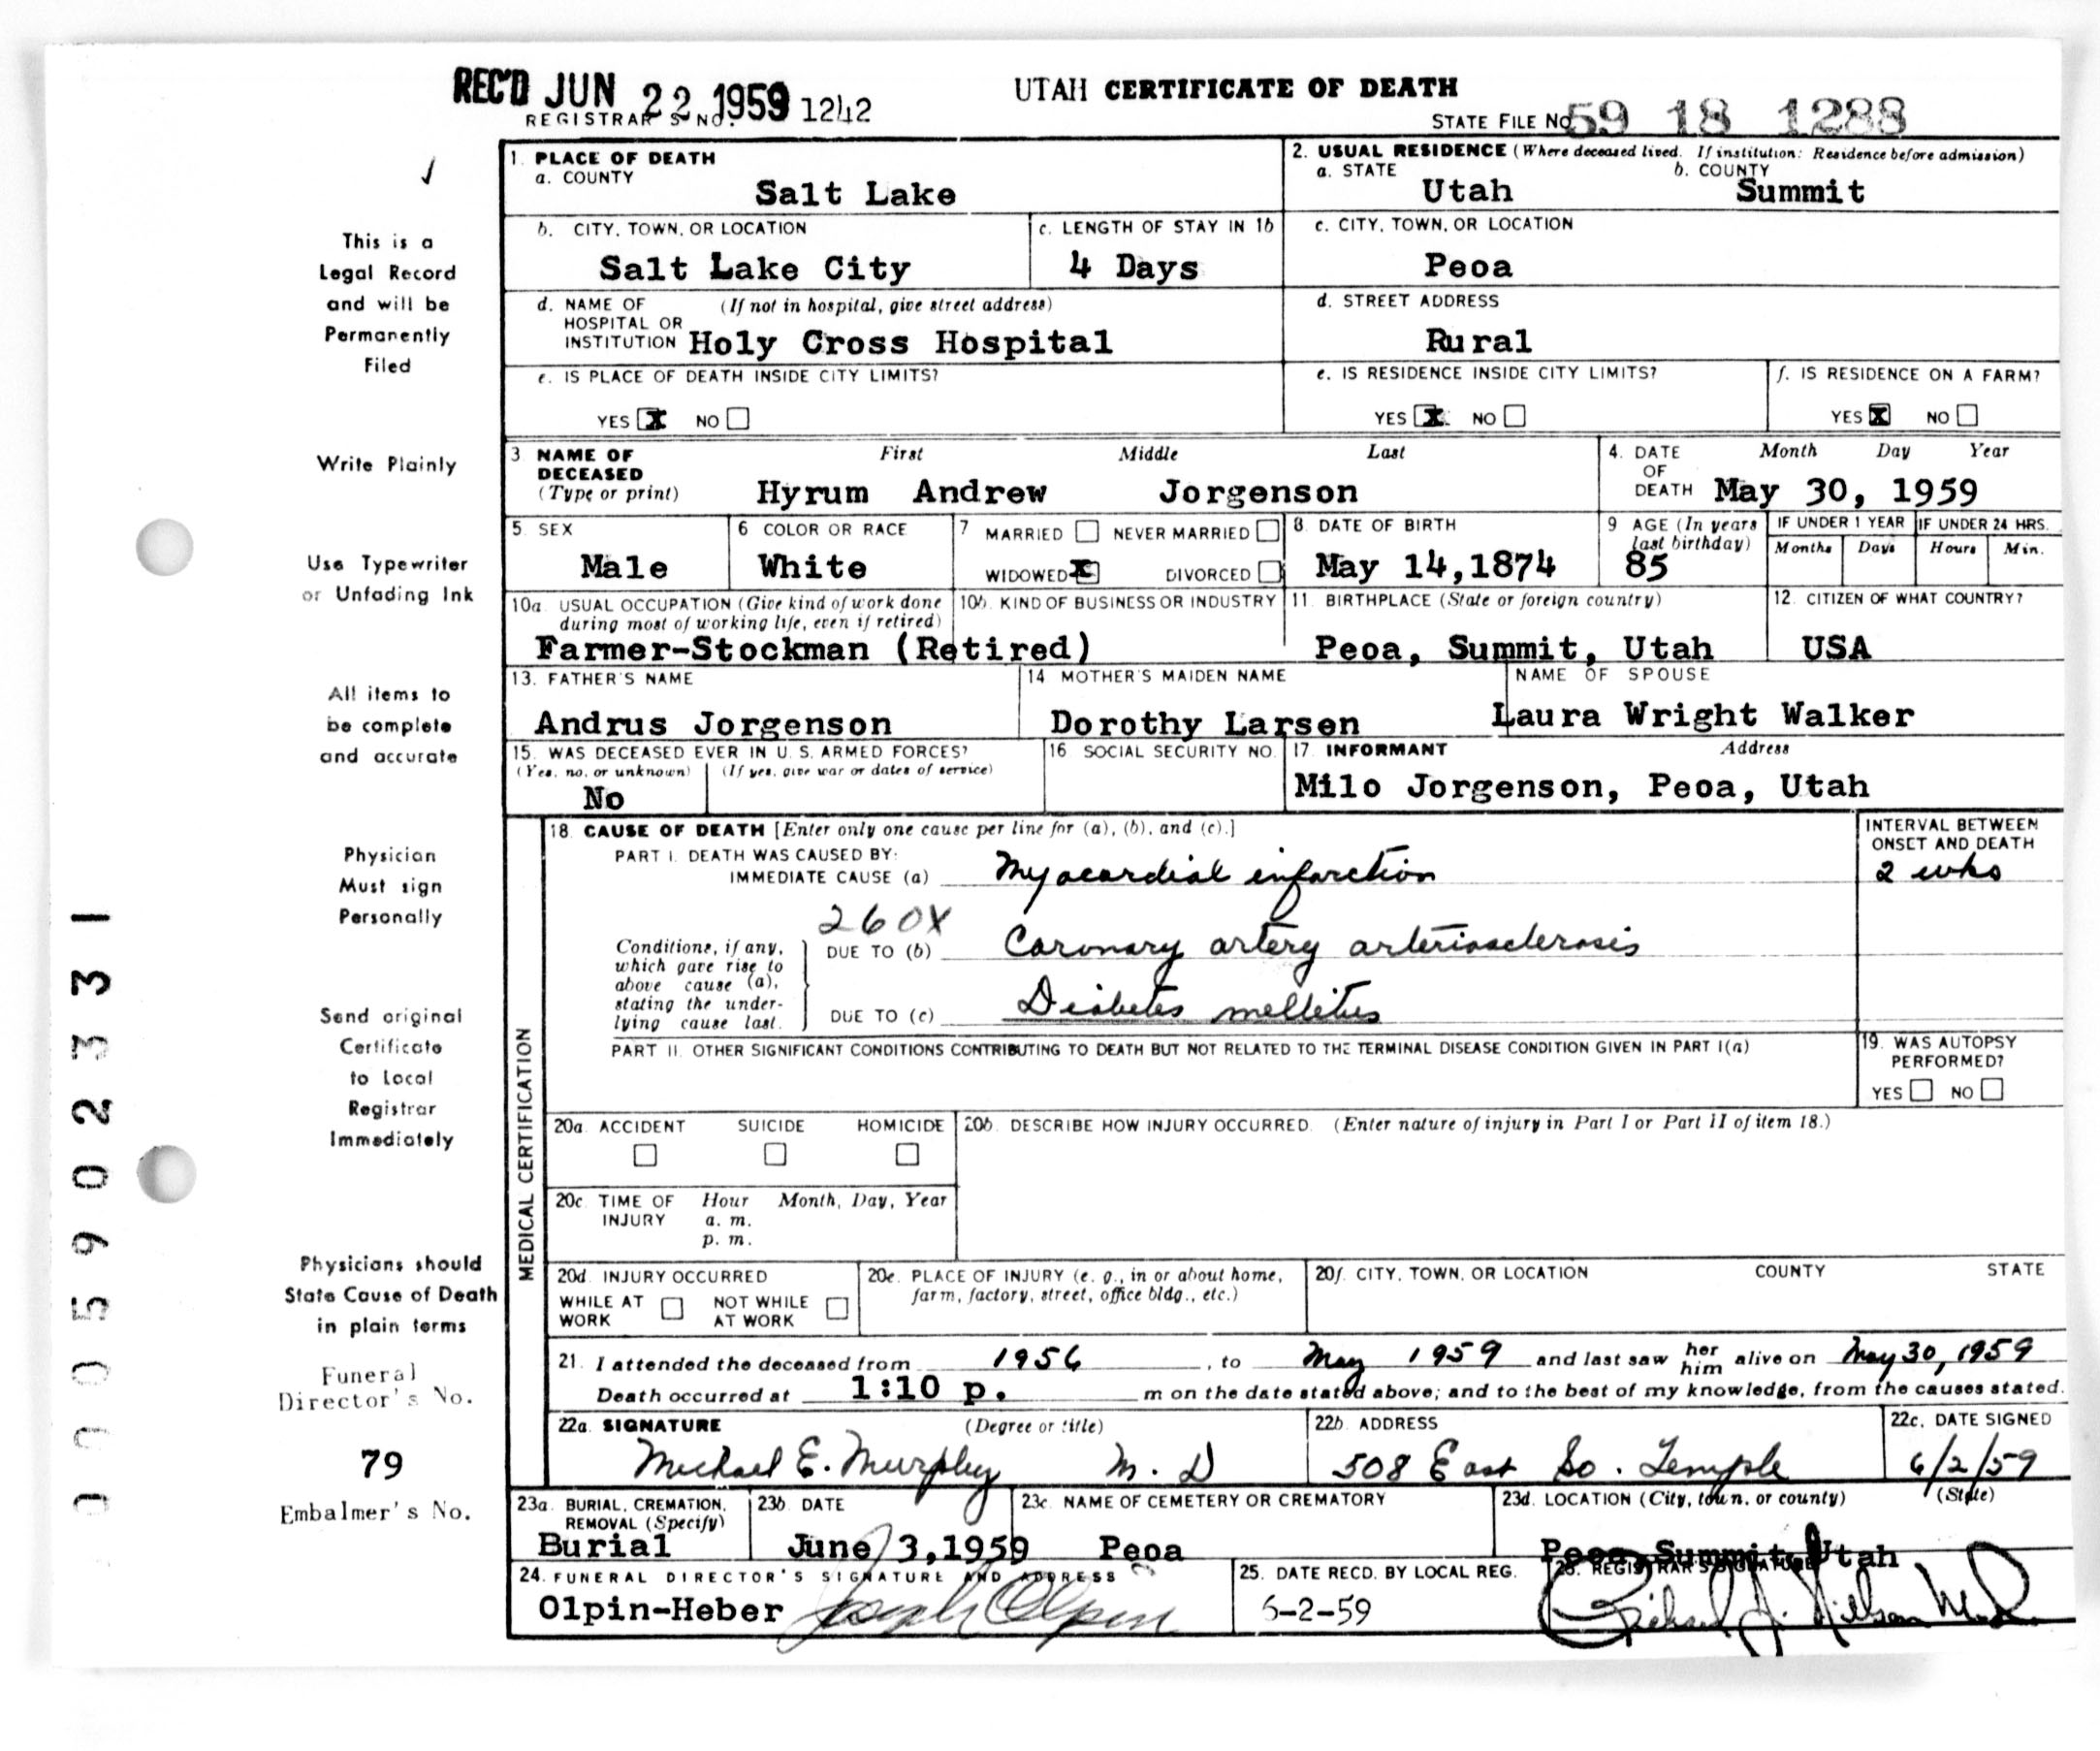 REC'D JUN 22 1959
UTAH CERTIFICATE OF DEATH
REGISTRAR'S NO. 1242
STATE FILE NO. 59 18 1288
1. PLACE OF DEATH
a. COUNTY
Salt Lake
2. USUAL RESIDENCE (Where deceased lived. If institution: Residence before admission)
a. STATE b. COUNTY
Utah Summit
b. CITY, TOWN, OR LOCATION
Salt Lake City
c. LENGTH OF STAY IN 1b
4 Days
c. CITY, TOWN, OR LOCATION
Peoa
d. NAME OF (If not in hospital, give street address)
HOSPITAL OR
INSTITUTION Holy Cross Hospital
d. STREET ADDRESS
Rural
e. IS PLACE OF DEATH INSIDE CITY LIMITS?
YES X NO
e. IS RESIDENCE INSIDE CITY LIMITS?
YES X NO
f. IS RESIDENCE ON A FARM?
YES X NO
3 NAME OF DECEASED
(Type or print)
First Middle Last
Hyrum Andrew Jorgenson
4. DATE OF DEATH
Month Day Year
May 30, 1959
5. SEX
Male
6 COLOR OR RACE
White
7 MARRIED NEVER MARRIED
WIDOWED X DIVORCED
8. DATE OF BIRTH
May 14,1874
9 AGE (In years last birthday)
85
IF UNDER 1 YEAR
Months Days
IF UNDER 24 HRS.
Hours Min.
10a. USUAL OCCUPATION (Give kind of work done
during most of working life, even if retired)
Farmer-Stockman (Retired)
10b. KIND OF BUSINESS OR INDUSTRY
11. BIRTHPLACE (State or foreign country)
Peoa, Summit, Utah
12. CITIZEN OF WHAT COUNTRY?
USA
13. FATHER'S NAME
Andrus Jorgenson
14 MOTHER'S MAIDEN NAME
Dorothy Larsen
NAME OF SPOUSE
Laura Wright Walker
15. WAS DECEASED EVER IN U. S. ARMED FORCES?
(Yes, no, or unknown) (If yes, give war or dates of service)
No
16 SOCIAL SECURITY NO.
17. INFORMANT Address
Milo Jorgenson, Peoa, Utah
MEDICAL CERTIFICATION
18. CAUSE OF DEATH [Enter only one cause per line for (a), (b), and (c).]
INTERVAL BETWEEN
ONSET AND DEATH
PART I. DEATH WAS CAUSED BY:
IMMEDIATE CAUSE (a) Myocardial infarction
2 wks
260X
Conditions, if any,
which gave rise to
above cause (a),
stating the under-
lying cause last.
DUE TO (b) Coronary artery arteriosclerosis
DUE TO (c) Diabetes mellitus
PART II. OTHER SIGNIFICANT CONDITIONS CONTRIBUTING TO DEATH BUT NOT RELATED TO THE TERMINAL DISEASE CONDITION GIVEN IN PART I(a)
19. WAS AUTOPSY
PERFORMED?
YES NO
20a. ACCIDENT SUICIDE HOMICIDE
20b. DESCRIBE HOW INJURY OCCURRED. (Enter nature of injury in Part I or Part II of item 18.)
20c. TIME OF INJURY
Hour Month, Day, Year
a. m.
p. m.
20d. INJURY OCCURRED
WHILE AT WORK NOT WHILE AT WORK
20e. PLACE OF INJURY (e. g., in or about home,
farm, factory, street, office bldg., etc.)
20f. CITY, TOWN, OR LOCATION COUNTY STATE
21. I attended the deceased from 1956, to May 1959 and last saw her him alive on May 30, 1959
Death occurred at 1:10 p. m on the date stated above; and to the best of my knowledge, from the causes stated.
22a. SIGNATURE (Degree or title)
Michael E. Murphy M. D
22b. ADDRESS
508 East So. Temple
22c. DATE SIGNED
6/2/59
23a. BURIAL, CREMATION,
REMOVAL (Specify)
Burial
23b. DATE
June 3,1959
23c. NAME OF CEMETERY OR CREMATORY
Peoa
23d. LOCATION (City, town, or county) (State)
Peoa, Summit, Utah
24. FUNERAL DIRECTOR'S SIGNATURE AND ADDRESS
Olpin-Heber Joseph Olpin
25. DATE RECD. BY LOCAL REG.
6-2-59
26. REGISTRAR'S SIGNATURE
This is a
Legal Record
and will be
Permanently
Filed
Write Plainly
Use Typewriter
or Unfading Ink
All items to
be complete
and accurate
Physician
Must sign
Personally
Send original
Certificate
to Local
Registrar
Immediately
Physicians should
State Cause of Death
in plain terms
Funeral
Director's No.
79
Embalmer's No.
0005902331